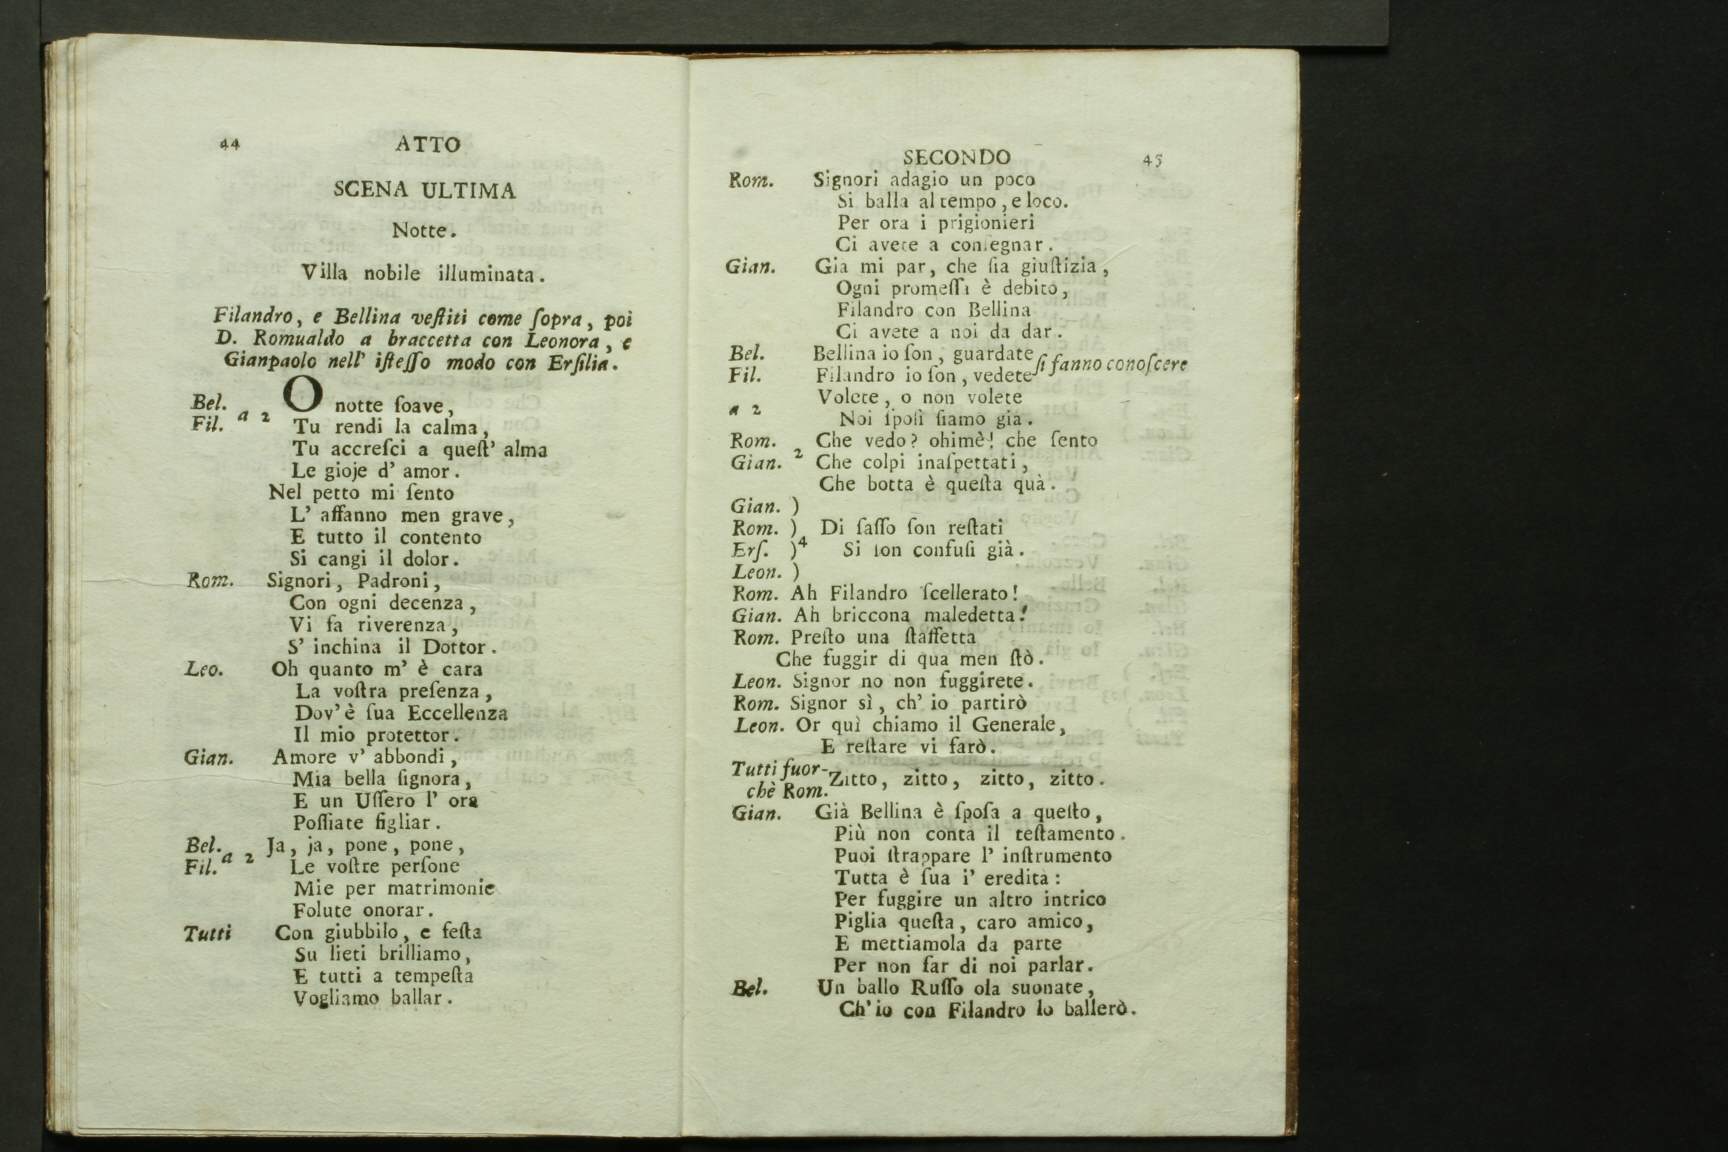 44 ATTO
SCENA ULTIMA
Notte.
Villa nobile illuminata.
Filandro, e Bellina veſtiti come ſopra, poi
D. Romualdo a braccetta con Leonora, e
Gianpaolo nell' iſteſſo modo con Erſilia.
Bel. a 2 O notte ſoave,
Fil. Tu rendi la calma,
Tu accreſci a queſt' alma
Le gioje d' amor.
Nel petto mi ſento
L' affanno men grave,
E tutto il contento
Si cangi il dolor.
Rom. Signori, Padroni,
Con ogni decenza,
Vi fa riverenza,
S' inchina il Dottor.
Leo. Oh quanto m' è cara
La voſtra preſenza,
Dov' è ſua Eccellenza
Il mio protettor.
Gian. Amore v' abbondi,
Mia bella ſignora,
E un Uſſero l' ora
Poſſiate figliar.
Bel. a 2 Ja, ja, pone, pone,
Fil. Le voſtre perſone
Mie per matrimonie
Folute onorar.
Tutti Con giubbilo, e feſta
Su lieti brilliamo,
E tutti a tempeſta
Vogliamo ballar.
SECONDO 45
Rom. Signori adagio un poco
Si balla al tempo, e loco.
Per ora i prigionieri
Ci avete a conſegnar.
Gian. Gia mi par, che ſia giuſtizia,
Ogni promeſſi è debito,
Filandro con Bellina
Ci avete a noi da dar.
Bel. Bellina io ſon, guardate ſi fanno conoſcere
Fil. Filandro io ſon, vedete
Volete, o non volete
a 2 Noi ſpoſi ſiamo già.
Rom. Che vedo? ohimè! che ſento
Gian. 2 Che colpi inaſpettati,
Che botta è queſta quà.
Gian. )
Rom. ) Di ſaſſo ſon reſtati
Erſ. )4 Si ſon confuſi già.
Leon. )
Rom. Ah Filandro ſcellerato!
Gian. Ah briccona maledetta!
Rom. Preſto una ſtaffetta
Che fuggir di qua men ſtò.
Leon. Signor no non fuggirete.
Rom. Signor sì, ch' io partirò
Leon. Or quì chiamo il Generale,
E reſtare vi farò.
Tutti fuor- Zitto, zitto, zitto, zitto.
chè Rom.
Gian. Già Bellina è ſpoſa a queſto,
Più non conta il teſtamento.
Puoi ſtrappare l' inſtrumento
Tutta è ſua i' eredità:
Per fuggire un altro intrico
Piglia queſta, caro amico,
E mettiamola da parte
Per non far di noi parlar.
Bel. Un ballo Ruſſo ola suonate,
Ch' io con Filandro lo ballerò.